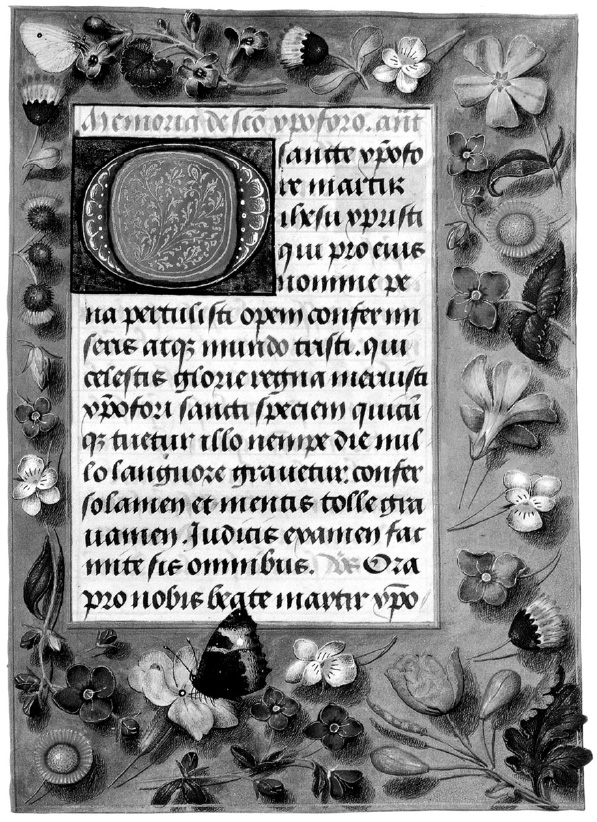 Memoria de sc̄o xp̄oforo. ant̄
O sancte xp̄ofo
re martir
ihesu xpristi
qui pro eius
nomine pe
na pertulisti opem confer mi
seris atq̨ mundo tristi. qui
celestis glorie regna meruisti
xp̄ofori sancti speciem quicū
q̨ tuetur illo nempe die nul
lo languore grauetur. confer
solamen et mentis tolle gra
uamen. Judicis examen fac
mite sis omnibus. Ora
pro nobis beate martir xp̄o